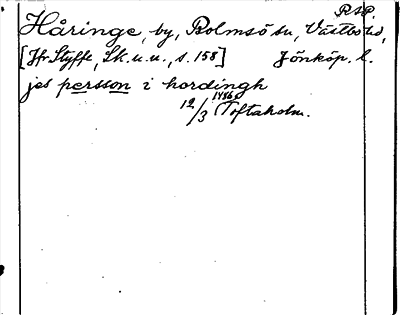 R.A.P.
Håringe, by, Bolmsö sn, Västbo hd,
[Jfr Styffe, Sk.u.u., s. 158] Jönköp. l.
jes persson i hordingh
12/3 1486 Toftaholm.